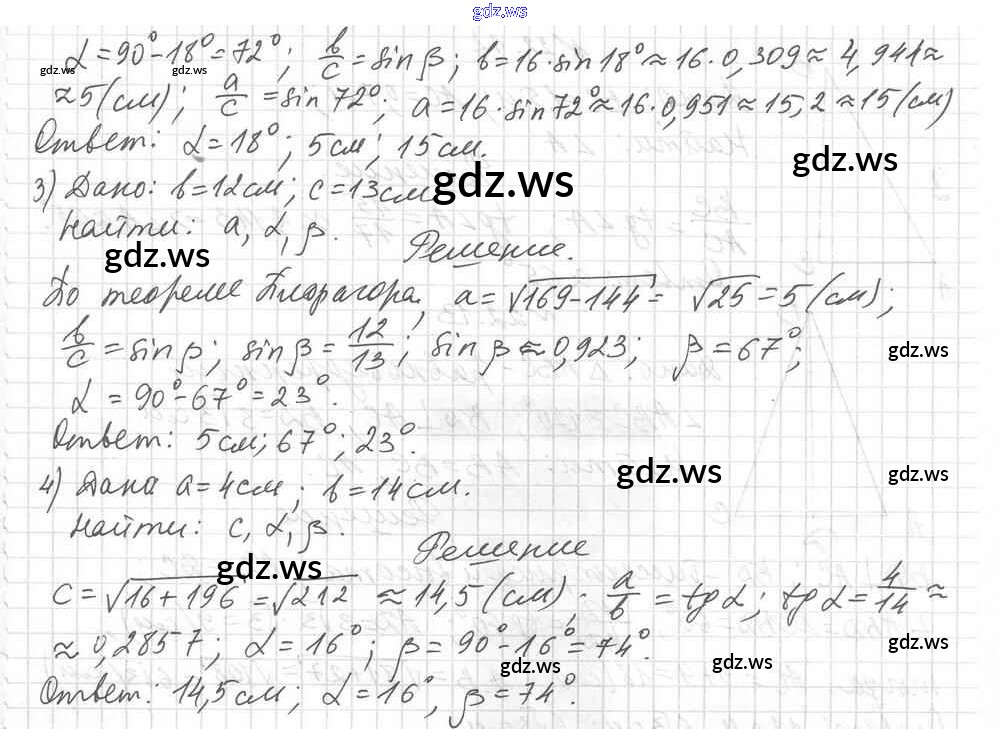 gdz.ws
α = 90° - 18° = 72°; b/c = sin β; b = 16 · sin 18° ≈ 16 · 0,309 ≈ 4,941 ≈
gdz.ws gdz.ws gdz.ws
≈ 5 (см); a/c = sin 72°; a = 16 · sin 72° ≈ 16 · 0,951 ≈ 15,2 ≈ 15 (см)
Ответ: α = 18°; 5 см; 15 см.
gdz.ws
3) Дано: b = 12 см; c = 13 см
gdz.ws
Найти: a, α, β.
gdz.ws
Решение.
По теореме Пифагора, a = √169-144 = √25 = 5 (см);
b/c = sin β; sin β = 12/13; sin β ≈ 0,923; β = 67°;
gdz.ws
α = 90° - 67° = 23°.
Ответ: 5 см; 67°; 23°.
gdz.ws gdz.ws
4) Дана a = 4 см; b = 14 см.
Найти: c, α, β.
Решение
gdz.ws
c = √16+196 = √212 ≈ 14,5 (см); a/b = tg α; tg α = 4/14 ≈
≈ 0,2857; α = 16°; β = 90° - 16° = 74°.
gdz.ws gdz.ws gdz.ws
Ответ: 14,5 см; α = 16°, β = 74°.